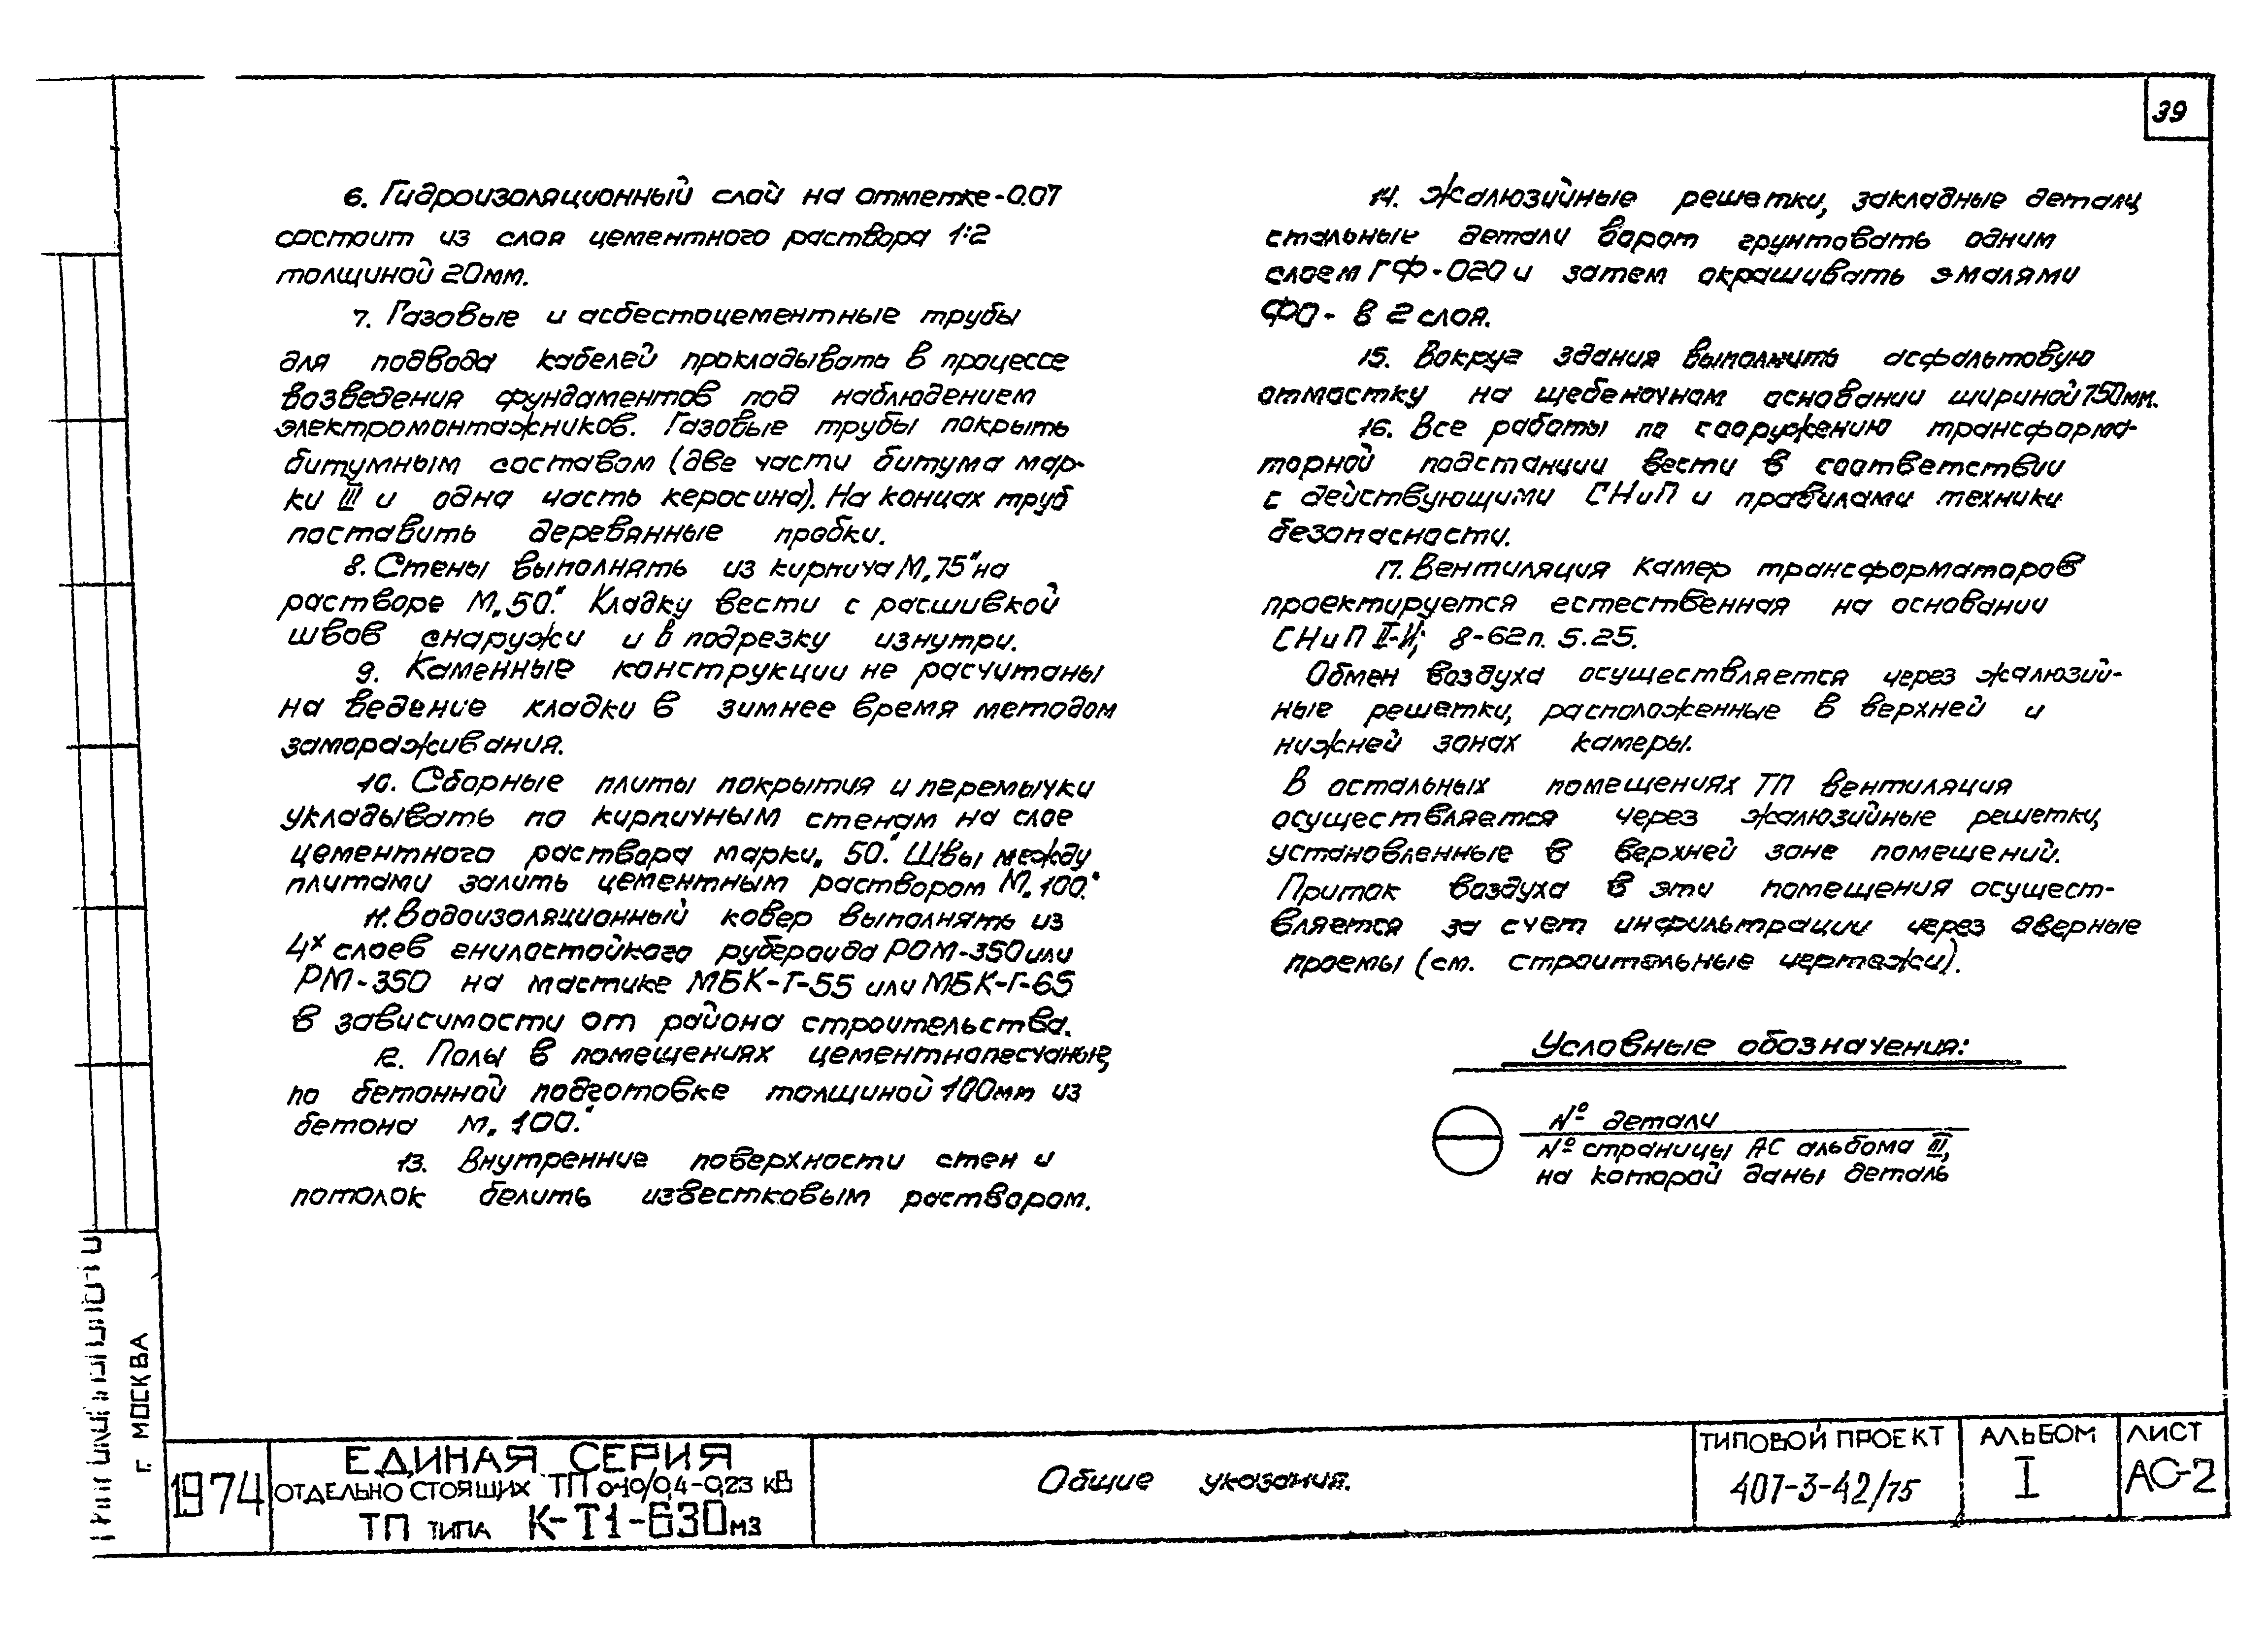 39
6. Гидроизоляционный слой на отметке-0.07
состоит из слоя цементного раствора 1:2
толщиной 20мм.
7. Газовые и асбестоцементные трубы
для подвода кабелей прокладывать в процессе
возведения фундаментов под наблюдением
электромонтажников. Газовые трубы покрыть
битумным составом (две части битума мар-
ки III и одна часть керосина). На концах труб
поставить деревянные пробки.
8. Стены выполнять из кирпича М„75" на
растворе М„50." Кладку вести с расшивкой
швов снаружи и в подрезку изнутри.
9. Каменные конструкции не расчитаны
на ведение кладки в зимнее время методом
замораживания.
10. Сборные плиты покрытия и перемычки
укладывать по кирпичным стенам на слое
цементного раствора марки„ 50." Швы между
плитами залить цементным раствором М„100."
11. Водоизоляционный ковер выполнять из
4х слоев гнилостойкого рубероида РОМ-350 или
РМ-350 на мастике МБК-Г-55 или МБК-Г-65
в зависимости от района строительства.
12. Полы в помещениях цементнопесчаные,
по бетонной подготовке толщиной 100мм из
бетона м„ 100."
13. Внутренние поверхности стен и
потолок белить известковым раствором.
14. Жалюзийные решетки, закладные детали
стальные детали ворот грунтовать одним
слоем ГФ-020 и затем окрашивать эмалями
ФО- в 2 слоя.
15. Вокруг здания выполнить асфальтовую
отмостку на щебеночном основании шириной 750мм.
16. Все работы по сооружению трансформа-
торной подстанции вести в соответствии
с действующими СНиП и правилами техники
безопасности.
17. Вентиляция камер трансформаторов
проектируется естественная на основании
СНиП II-И; 8-62 п. 5.25.
Обмен воздуха осуществляется через жалюзий-
ные решетки, расположенные в верхней и
нижней зонах камеры.
В остальных помещениях ТП вентиляция
осуществляется через жалюзийные решетки,
установленные в верхней зоне помещений.
Приток воздуха в эти помещения осущест-
вляется за счет инфильтрации через дверные
проемы (см. строительные чертежи).
Условные обозначения:
№ детали
№ страницы АС альбома III,
на которой даны деталь
г. МОСКВА
1974
ЕДИНАЯ СЕРИЯ
ОТДЕЛЬНО СТОЯЩИХ ТП 6-10/0,4-0,23 кВ
ТП ТИПА К-Т1-630 м3
Общие указания.
ТИПОВОЙ ПРОЕКТ
407-3-42/75
АЛЬБОМ
I
ЛИСТ
АС-2